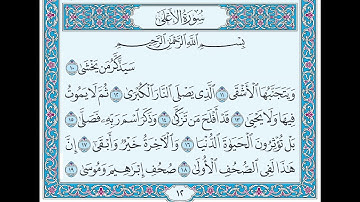 سُورَةُ الأَعْلَى
بِسْمِ اللَّهِ الرَّحْمَٰنِ الرَّحِيمِ
سَيَذَّكَّرُ مَن يَخْشَىٰ ١٠
وَيَتَجَنَّبُهَا الْأَشْقَى ١١ الَّذِي يَصْلَى النَّارَ الْكُبْرَىٰ ١٢ ثُمَّ لَا يَمُوتُ
فِيهَا وَلَا يَحْيَىٰ ١٣ قَدْ أَفْلَحَ مَن تَزَكَّىٰ ١٤ وَذَكَرَ اسْمَ رَبِّهِ فَصَلَّىٰ ١٥
بَلْ تُؤْثِرُونَ الْحَيَوٰةَ الدُّنْيَا ١٦ وَالْآخِرَةُ خَيْرٌ وَأَبْقَىٰ ١٧ إِنَّ
هَٰذَا لَفِي الصُّحُفِ الْأُولَىٰ ١٨ صُحُفِ إِبْرَاهِيمَ وَمُوسَىٰ ١٩
١٢